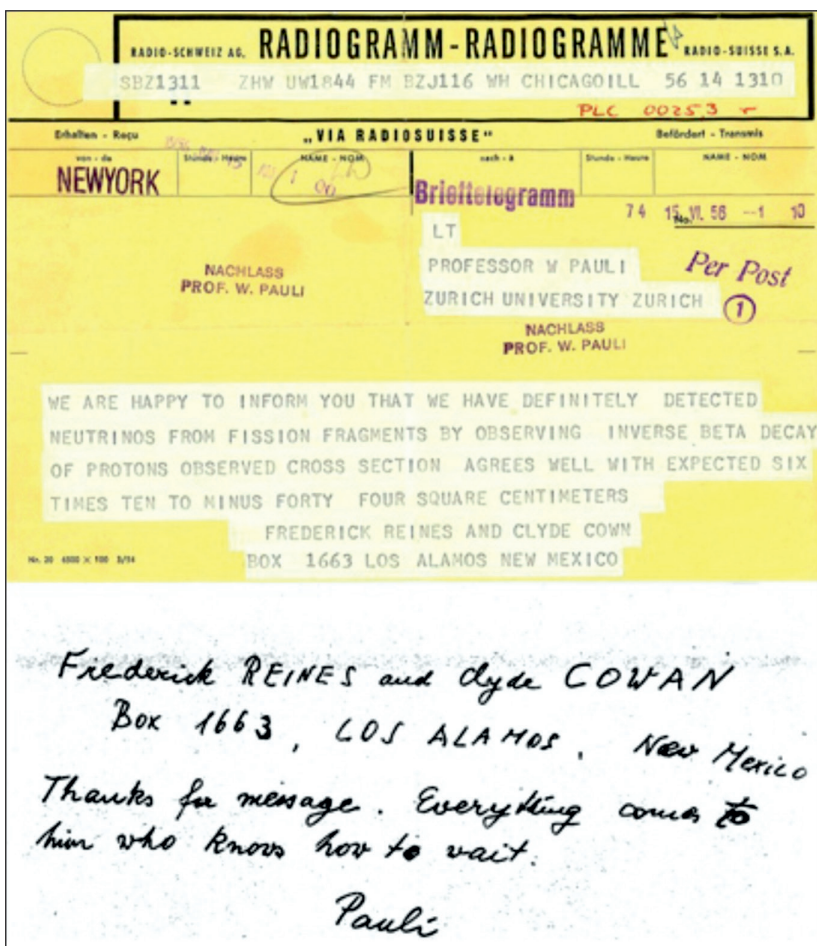 RADIO-SCHWEIZ AG. RADIOGRAMM-RADIOGRAMME RADIO-SUISSE S.A.
SBZ1311 ZHW UW1844 FM BZJ116 WH CHICAGOILL 56 14 1310
PLC 00253
Erhalten - Reçu „VIA RADIOSUISSE" Befördert - Transmis
von - de Stunde - Heure NAME - NOM nach - à Stunde - Heure NAME - NOM
NEWYORK
Brieftelegramm
74 15.VI.56 --1 10
LT
PROFESSOR W PAULI
Per Post
NACHLASS
PROF. W. PAULI
ZURICH UNIVERSITY ZURICH
1
NACHLASS
PROF. W. PAULI
WE ARE HAPPY TO INFORM YOU THAT WE HAVE DEFINITELY DETECTED
NEUTRINOS FROM FISSION FRAGMENTS BY OBSERVING INVERSE BETA DECAY
OF PROTONS OBSERVED CROSS SECTION AGREES WELL WITH EXPECTED SIX
TIMES TEN TO MINUS FORTY FOUR SQUARE CENTIMETERS
FREDERICK REINES AND CLYDE COWN
BOX 1663 LOS ALAMOS NEW MEXICO
Frederick REINES and Clyde COWAN
Box 1663, LOS ALAMOS, New Mexico
Thanks for message. Everything comes to
him who knows how to vait.
Pauli